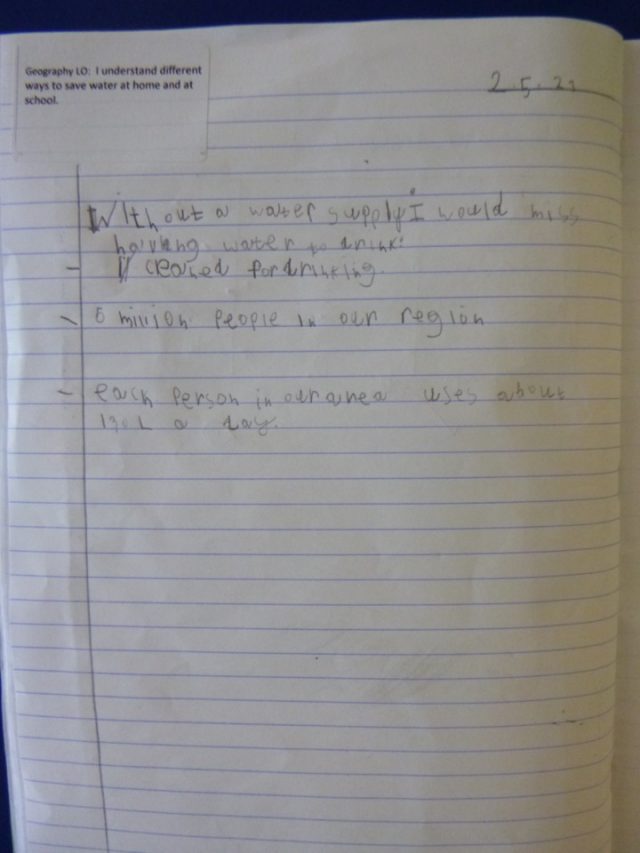 Geography LO: I understand different
ways to save water at home and at
school.
2.5.21
Without a water supply I would miss
having water to drink.
- cleaned for drinking
- 6 million people in our region
- each person in our area uses about
130L a day.